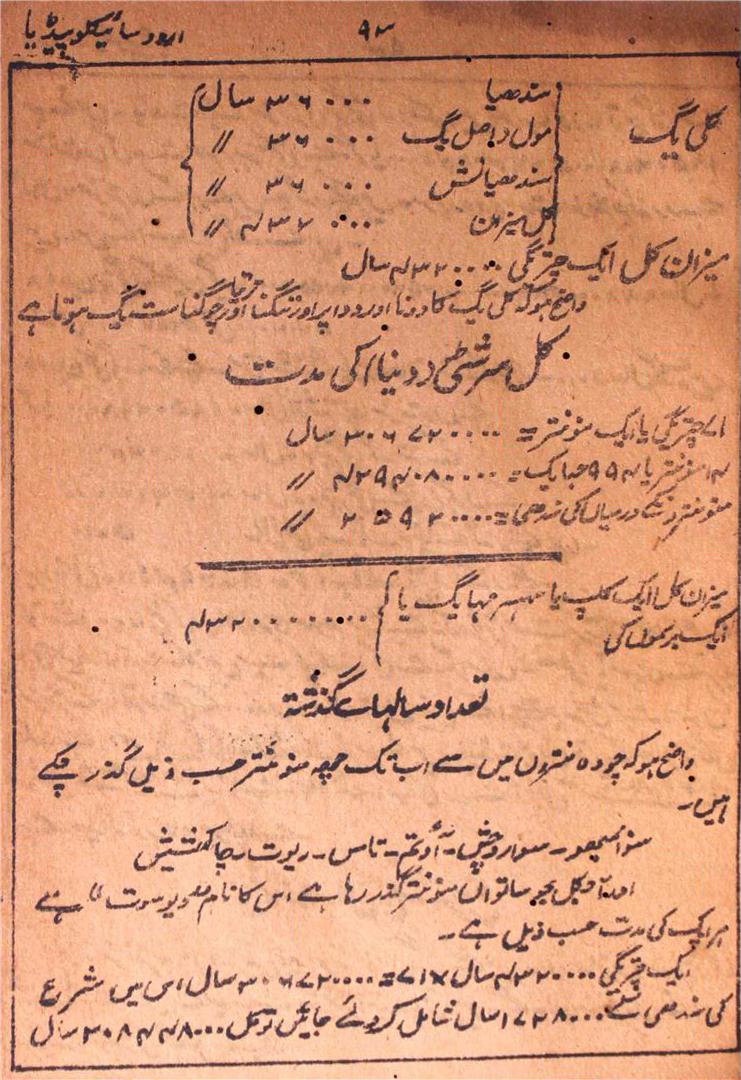 اردو سائیکلوپیڈیا
۹۳
کلی یگ
سندھیا ۳۶۰۰۰ سال
مول واصل یگ ۳۶۰۰۰۰ 〃
سندھیانش ۳۶۰۰۰ 〃
کل میزان ۴۳۲۰۰۰ 〃
میزان کل ایک چترنگی ۴۳۲۰۰۰۰ سال
واضح ہو کہ کلی یگ کا دونا اور دواپر اور تگنا ترتیا اور چوگنا ست یگ ہوتا ہے
کل سرشٹی (دنیا) کی مدت
۷۱ چترنگی یا ایک منونتر = ۳۰۶۷۲۰۰۰۰ سال
۱۴ منونتر یا ۹۹۴ مہایگ = ۴۲۹۴۰۸۰۰۰۰ 〃
منونتروں کے درمیان کی سندھی = ۲۵۹۲۰۰۰۰ 〃
میزان کل ایک کلپ یا سہسر مہایگ یا
ایک برہموں کی
۴۳۲۰۰۰۰۰۰۰
تعداد سالہائے گذشتہ
واضح ہو کہ چودہ منتروں میں سے اب تک چھ منونتر حسب ذیل گذر چکے
ہیں۔
سوامبھو۔ سواروچش۔ آؤتم۔ تامس۔ ریوت۔ چاکھشش
اور آجکل جو ساتواں منونتر گذر رہا ہے اس کا نام "ویوسوت" ہے
ہر ایک کی مدت حسب ذیل ہے۔
ایک چترنگی ۴۳۲۰۰۰۰ سال × ۷۱ = ۳۰۶۷۲۰۰۰۰ سال اس میں شروع
کی سندھی کے ۱۷۲۸۰۰۰ سال شامل کر دئے جائیں تو کل ۳۰۸۴۴۸۰۰۰ سال